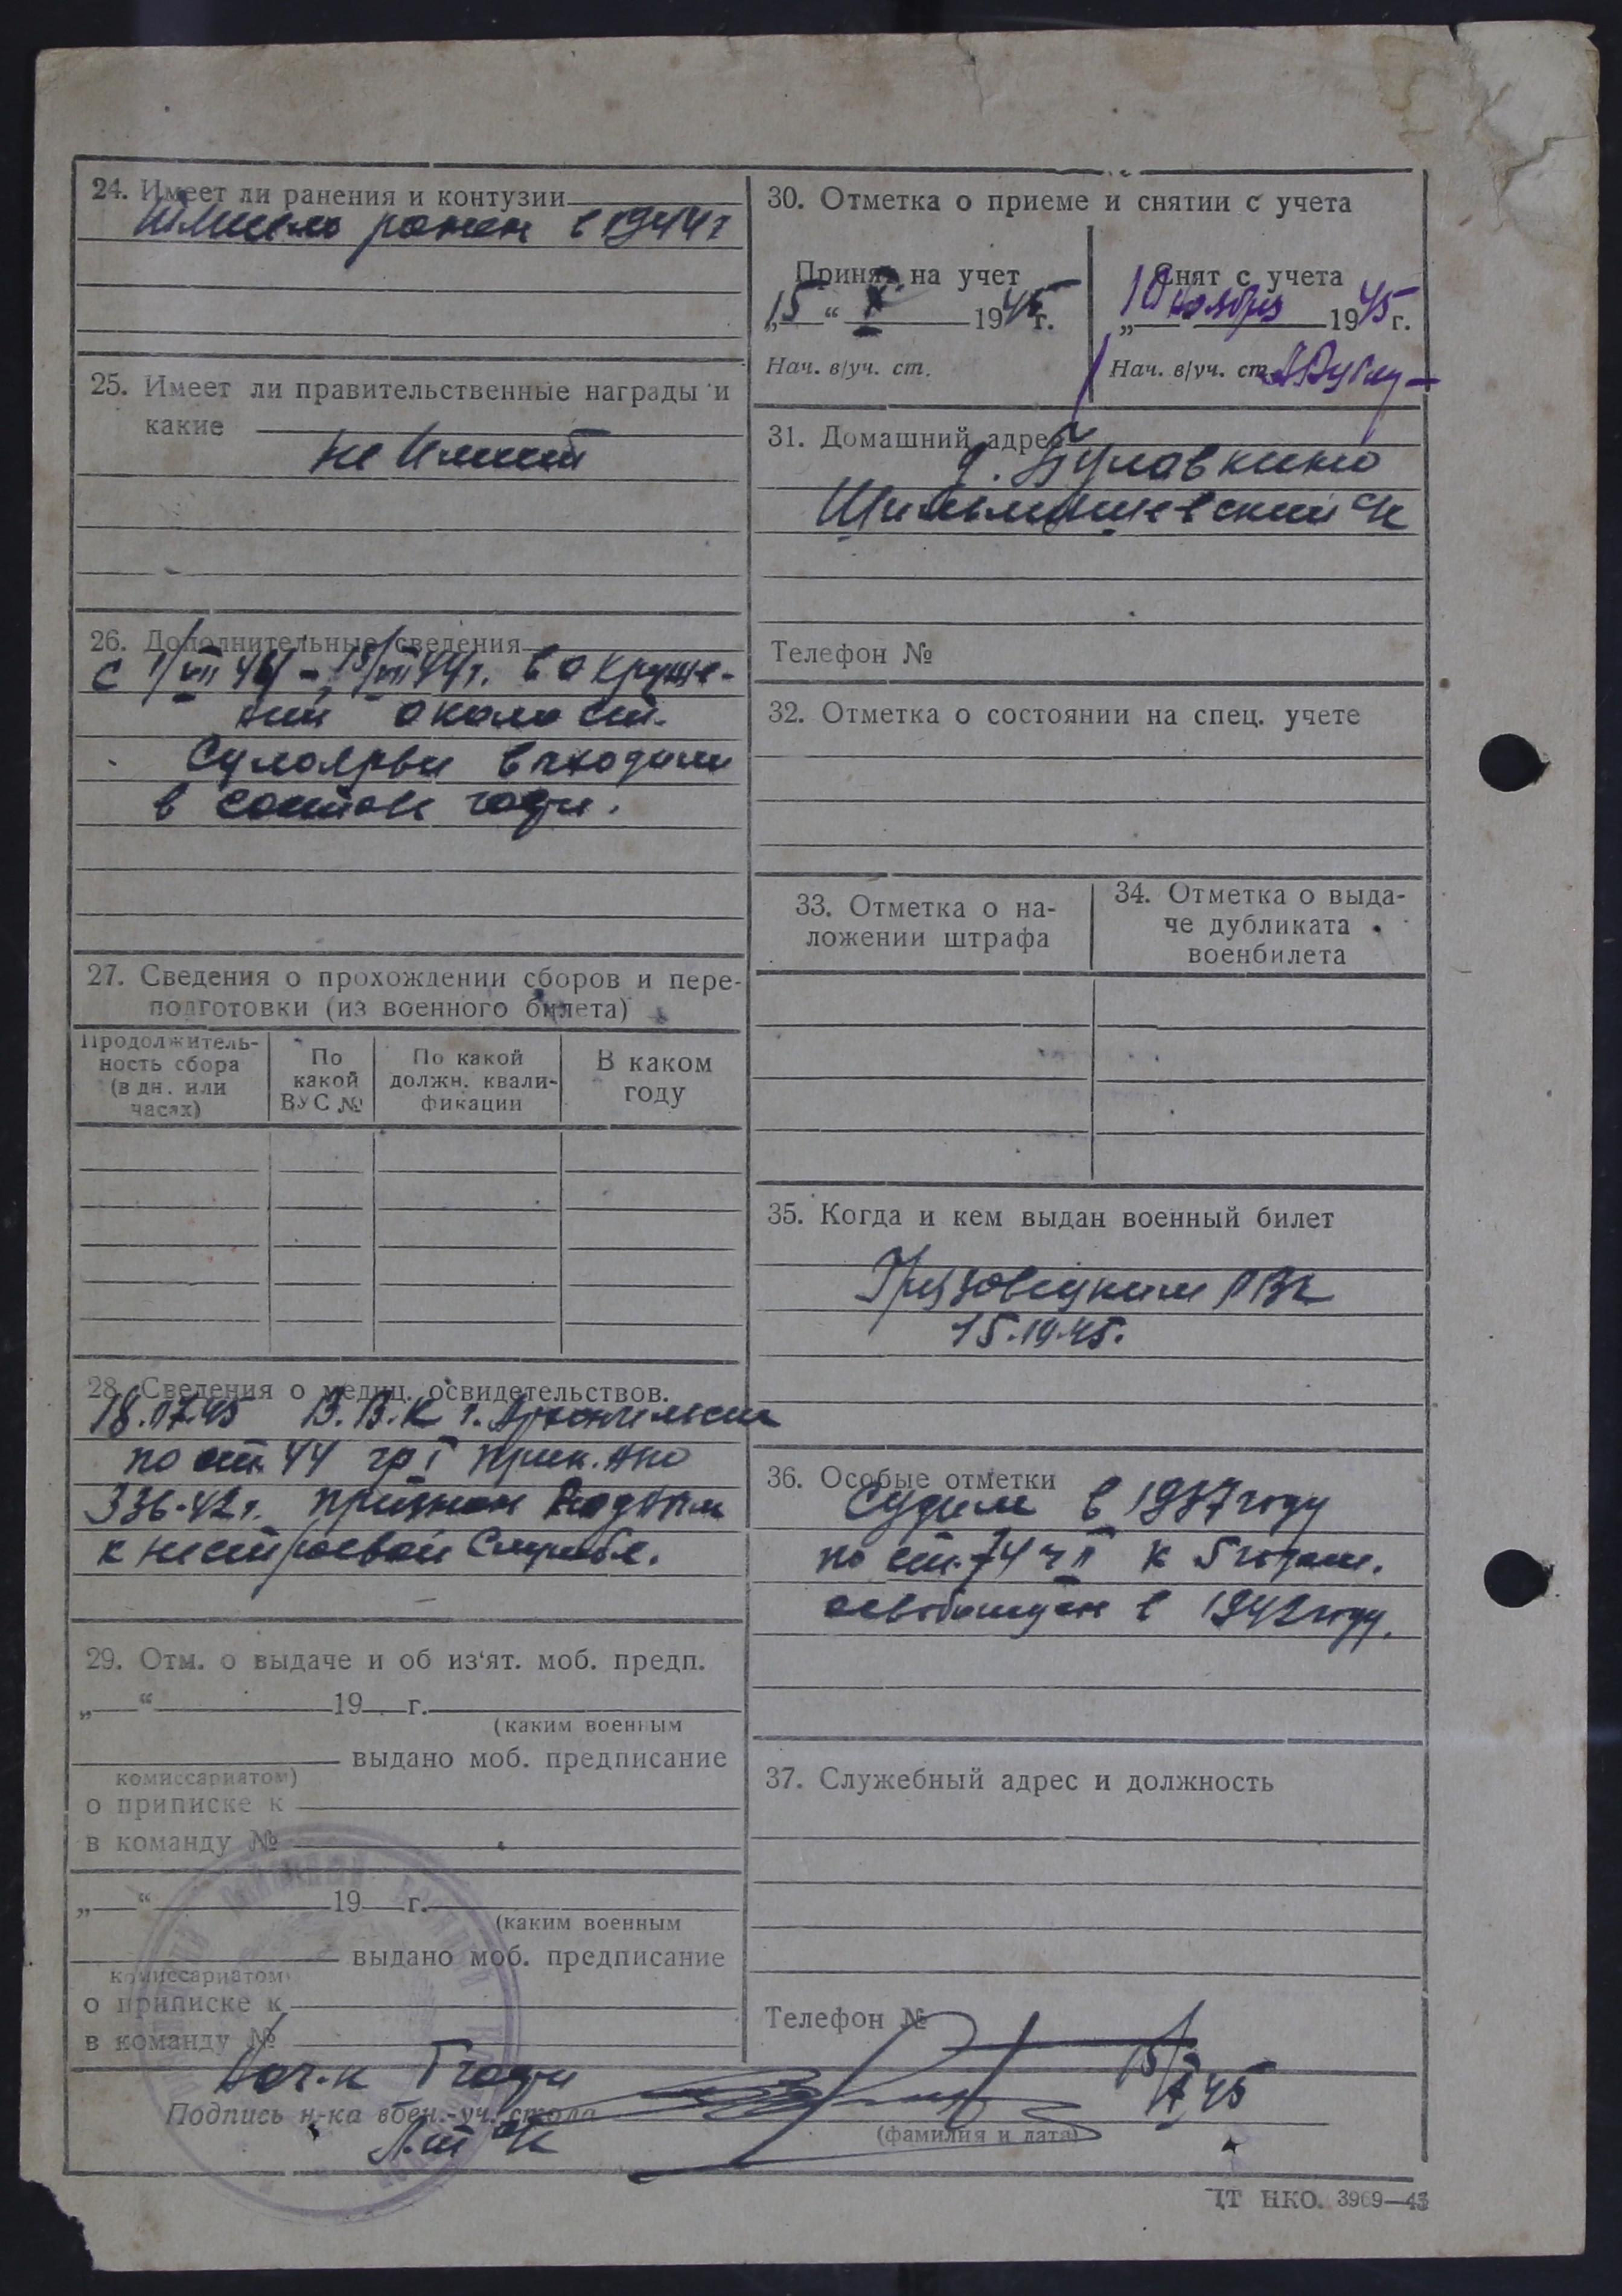 24. Имеет ли ранения и контузии
ранен в 1944 г
25. Имеет ли правительственные награды и
какие
не имеет
26. Дополнительные сведения
с 1/VII 44 - 15/VII 44 г. в окруже-
нии около ст.
Сулоярви выходили
в составе части.
27. Сведения о прохождении сборов и пере-
подготовки (из военного билета)
Продолжитель-
ность сбора
(в дн. или
часах)
По
какой
ВУС №
По какой
должн. квали-
фикации
В каком
году
28. Сведения о медиц. освидетельствов.
18. 45 В.В.К г. Архангельска
по ст. 44 гр I прик. НКО
336-42 г. признан годным
к нестроевой службе.
29. Отм. о выдаче и об из'ят. моб. предп.
„ “ 19 г.
(каким военным
выдано моб. предписание
комиссариатом)
о приписке к
в команду №
„ “ 19 г.
(каким военным
выдано моб. предписание
комиссариатом
о приписке к
в команду №
30. Отметка о приеме и снятии с учета
Принят на учет
„15“ X 1945 г.
Нач. в/уч. ст.
Снят с учета
„10 ноября 1945 г.
Нач. в/уч. ст.
31. Домашний адрес
д. Булавкино
с/с
Телефон №
32. Отметка о состоянии на спец. учете
33. Отметка о на-
ложении штрафа
34. Отметка о выда-
че дубликата
военбилета
35. Когда и кем выдан военный билет
Грязовецким РВК
15.10.45.
36. Особые отметки
Судим в 1937 году
по ст. 74 ч II к 5 годам.
освобожден в 1942 году.
37. Служебный адрес и должность
Телефон №
Нач-к I части
15/X 45
Подпись н-ка воен.-уч. стола
(фамилия и дата)
ЦТ НКО. 3969—43